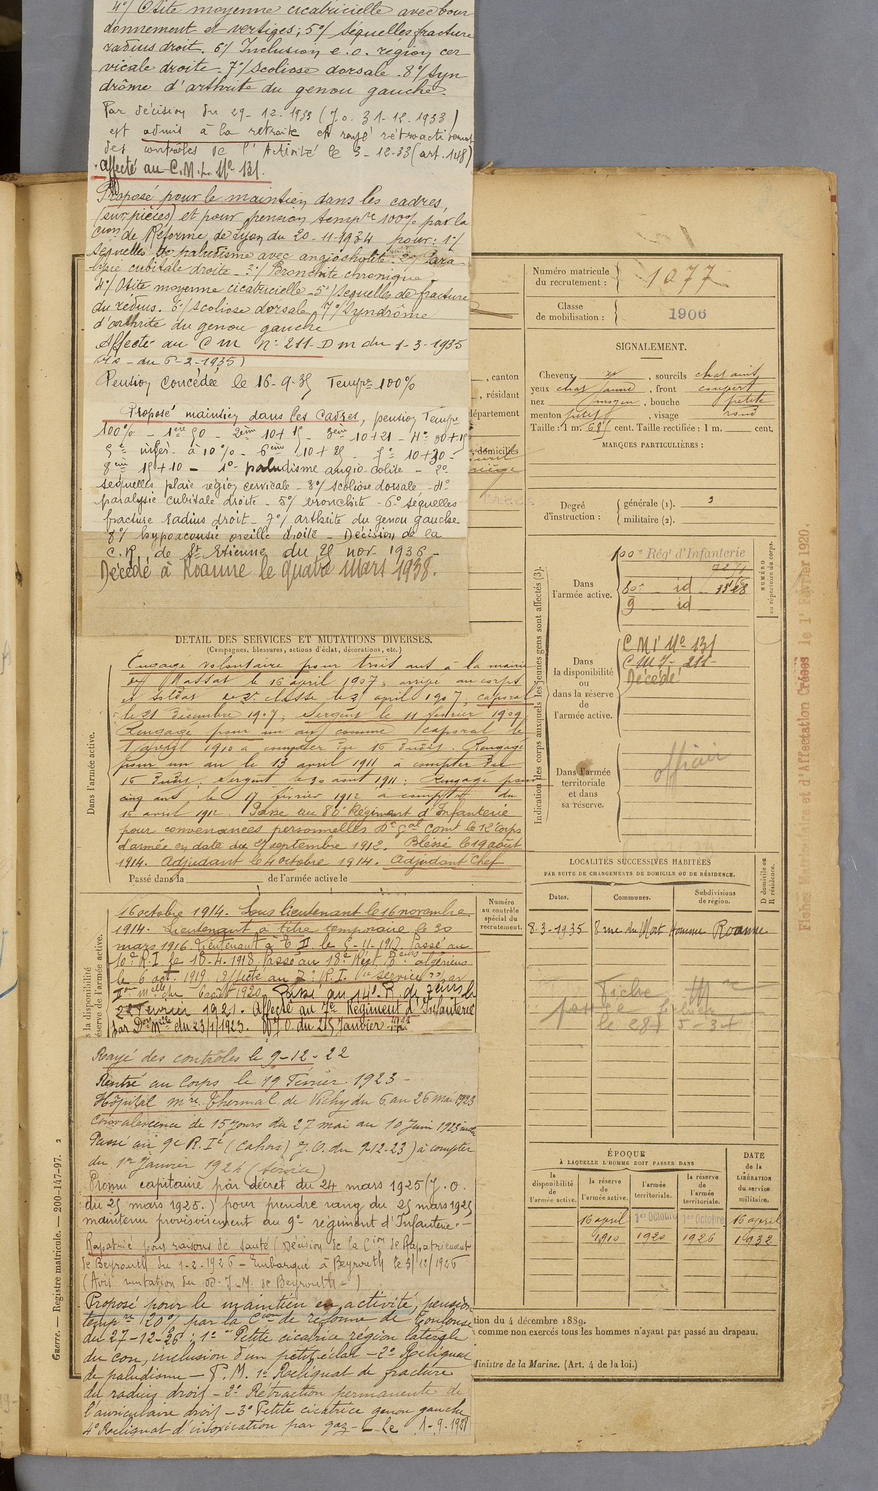 4°/ Otite moyenne cicatricielle avec bour
donnement et vertiges; 5°/ Séquelles fracture
radius droit. 6°/ Inclusion e.o. région cer
vicale droite. 7°/ Scoliose dorsale. 8°/ Syn
drôme d'arthrite du genou gauche.
Par décision du 29-12-1933 (J.o. 31-12-1933)
est admis à la retraite et rayé rétroactivement
des contrôles de l'Activité le 3-12-33 (art. 148)
affecté au C.M. N° 131.
Proposé pour le maintien dans les cadres,
(sur pièces) et pour pension temp^re 100% par la
C^ion de Réforme de Lyon du 20-11-1934 pour: 1°/
séquelles de paludisme avec angiocholite. 2°/ Para
lysie cubitale droite - 3°/ Bronchite chronique
4°/ Otite moyenne cicatricielle - 5°/ Séquelles de fracture
du radius. 6°/ Scoliose dorsale. 7°/ Syndrome
d'arthrite du genou gauche
Affecté au C M n° 211 - D m du 1-3-1935
du 6-2-1935)
Pension Concédée le 16-9-35 Temp^re 100%
Proposé maintien dans les Cadres, pension Temp^re
100% - 1^ère 50 - 2^ème 10+15 - 3^ème 10+21 - 4°
5° infér. à 10% - 6^ème 10+25 - 7° 10+30 -
8^ème 15+10 - 1° paludisme angio colite - 2°
séquelles plaie région cervicale - 3°/ scoliose dorsale - 4°
paralysie cubitale droite - 5°/ bronchite - 6° séquelles
fracture radius droit - 7°/ arthrite du genou gauche
8°/ hypoacousie oreille droite - Décision de la
C.R. de S^t Etienne du 25 nov. 1936 -
Décédé à Roanne le quatre mars 1938.
DÉTAIL DES SERVICES ET MUTATIONS DIVERSES.
(Campagnes, blessures, actions d'éclat, décorations, etc.)
Dans l'armée active.
Engagé volontaire pour trois ans à la mairie
de Massat le 16 avril 1907, arrivé au corps
et soldat de 2^e classe le avril 1907, caporal
le 21 décembre 1907, Sergent le 11 février 1909
Rengagé pour un an comme caporal le
1 avril 1910 à compter du 16 dudit. Rengagé
pour un an le 13 avril 1911 à compter du
16 dudit, sergent le 30 août 1911. Rengagé pour
cinq ans le 17 février 1912 à compter du
16 avril 1912. Passé au 80^e Régiment d'Infanterie
pour convenances personnelles D^on G^al Com^t le 12^e corps
d'armée en date du 9 septembre 1912. Blessé le 19 août
1914. Adjudant le 4 octobre 1914. Adjudant Chef
Passé dans la de l'armée active le
16 octobre 1914. Sous lieutenant le 16 novembre
1914. Lieutenant à titre temporaire le 30
mars 1916. Lieutenant à T D le 5-11-1917. Passé au
10^e R.I. le 18-4-1918. Passé au 18^e Reg^t algériens
le 6 oct. 1919. Affecté au 7^e R.I.
Passé au 14^e R. de
22 Février 1921. Affecté au 7^e Régiment d'Infanterie
par D^on M^elle du 23/1/1923. J.O. du 25 Janvier
Rayé des contrôles le 9-12-22
Rentré au Corps le 19 Février 1923 -
Hôpital m^re thermal de Vichy du 6 au 26 mai 1923
Convalescence de 15 jours du 27 mai au 10 Juin 1923
Passé au 9^e R.I^e (Cahors) J.O. du 9-12-23) à compter
du 1^er Janvier 1924 (service)
Promu capitaine par décret du 24 mars 1925 (J.O.
du 25 mars 1925.) pour prendre rang du 25 mars 1925
maintenu provisoirement au 9^e régiment d'Infanterie -
Rapatrié pour raisons de santé (Décision de la C^ion de Rapatriement
de Beyrouth du 1-2-1926 - Embarqué à Beyrouth le
(Avis mutation du J.M. de Beyrouth)
Proposé pour le maintien en activité, pension
temp^re (20%) par la C^ion de réforme de Toulouse
du 27-12-26: 1° Petite cicatrice région latérale
du cou, inclusion d'un petit éclat - 2° Reliquat
de paludisme - P.M. 1° Reliquat de fracture
du radius droit - 2° Rétraction permanente de
l'auriculaire droit - 3° Petite cicatrice genou gauche
4° Reliquat d'intoxication par gaz - Le 1-9-1931
Numéro
au contrôle
spécial du
recrutement.
Numéro matricule
du recrutement :
1077
Classe
de mobilisation :
1906
SIGNALEMENT.
Cheveux , sourcils chatains
yeux , front couvert
nez moyen , bouche petite
menton , visage rond
Taille : 1 m. 68 cent. Taille rectifiée : 1 m. cent.
MARQUES PARTICULIÈRES :
, canton
, résidant
département
domiciliés
Degré
d'instruction :
générale (1). 3
militaire (2).
Indication des corps auxquels les jeunes gens sont affectés (3).
NUMÉRO
au répertoire du corps.
Dans
l'armée active.
100^e Rég^t d'Infanterie
80^e id
9 id
Dans
la disponibilité
ou
dans la réserve
de
l'armée active.
C M I N° 131
C M I 211
Décédé
Dans l'armée
territoriale
et dans
sa réserve.
officier
LOCALITÉS SUCCESSIVES HABITÉES
PAR SUITE DE CHANGEMENTS DE DOMICILE OU DE RÉSIDENCE.
Dates.
Communes.
Subdivisions
de région.
D domicile ou
R résidence.
8-3-1935 8 rue du Mort Homme Roanne
Fiche
ÉPOQUE
À LAQUELLE L'HOMME DOIT PASSER DANS
DATE
de la
LIBÉRATION
du service
militaire.
la
disponibilité
de
l'armée active.
la réserve
de
l'armée active.
l'armée
territoriale.
la réserve
de
l'armée
territoriale.
16 avril 1^er Octobre 1^er Octobre 16 avril
1910 1920 1926 1932
tion du 4 décembre 1889.
comme non exercés tous les hommes n'ayant pas passé au drapeau.
inistre de la Marine. (Art. 4 de la loi.)
Guerre. — Registre matricule. — 200-147-97. 2
Fiches Matricule et d'Affectation Créées le 1^er Février 1920.